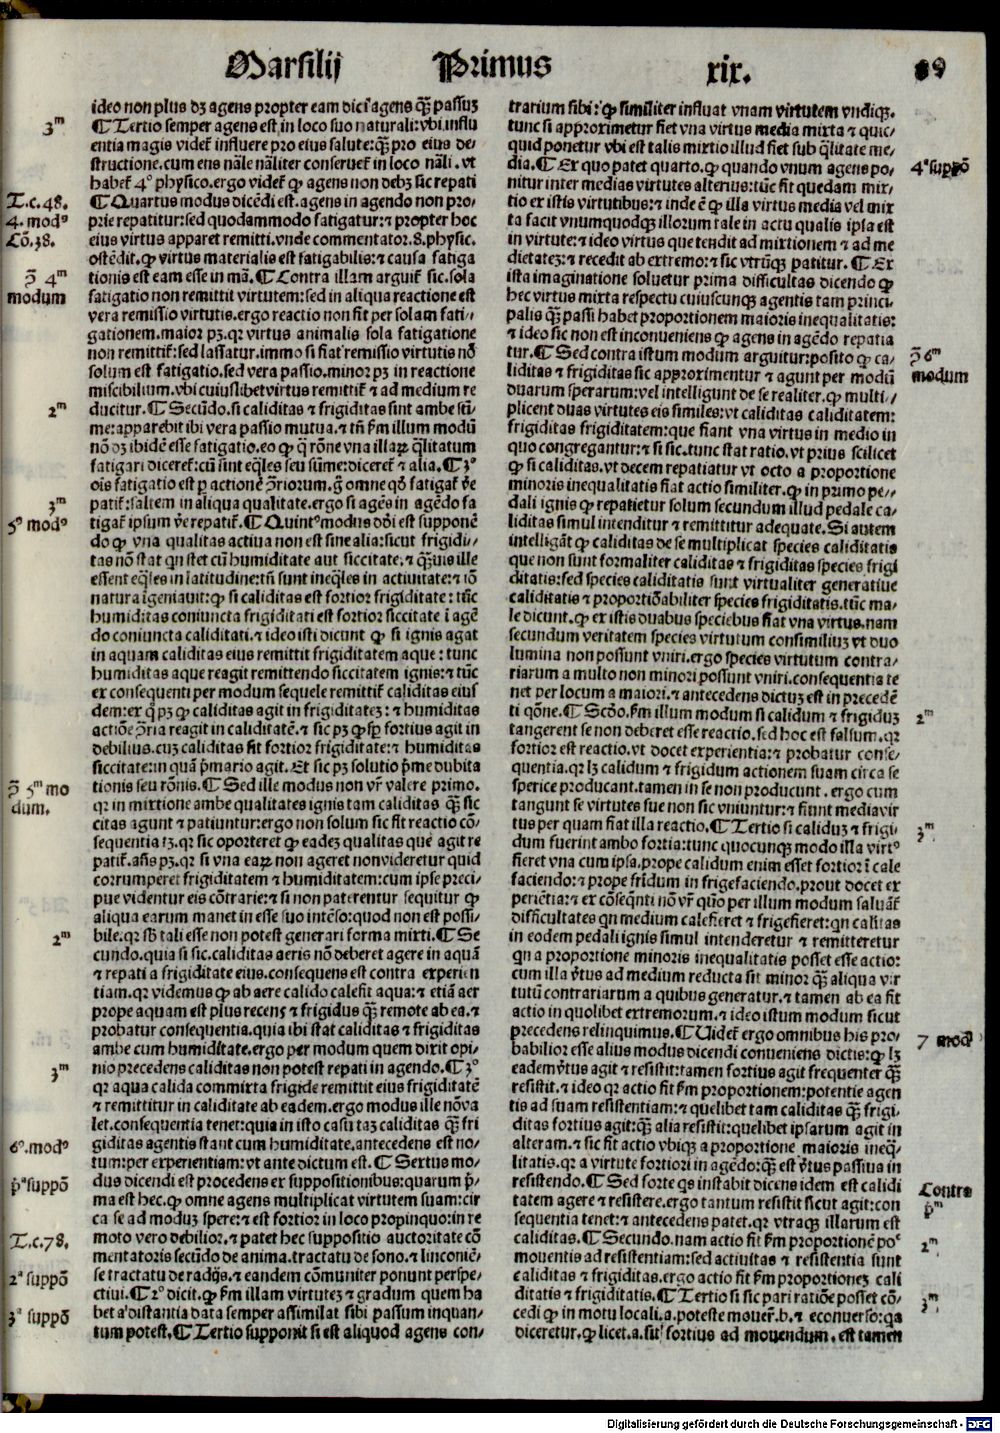 Marsilij Primus xix. 89
ideo non plus dꝫ agens propter eam dici agens qȝ̃ passuꝫ
¶ Tertio semper agens est in loco suo naturali: vbi influ
entia magis videt̃ influere pro eius salute: qȝ̃ pro eius de⸗
structione. cum ens nãle nãliter conseruet̃ in loco nãli. vt
habet̃ 4º physico. ergo videt̃ ꝙ agens non debꝫ sic repati
¶ Quartus modus dicẽdi est. agens in agendo non pro⸗
prie repatitur: sed quodammodo fatigatur: ⁊ propter hoc
eius virtus apparet remitti. vnde commentator. 8. physic.
ostẽdit. ꝙ virtus materialis est fatigabilis: ⁊ causa fatiga
tionis est eam esse in mã. ¶ Contra illam arguit̃ sic. sola
fatigatio non remittit virtutem: sed in aliqua reactione est
vera remissio virtutis. ergo reactio non fit per solam fati⸗
gationem. maior pꝫ. qꝛ virtus animalis sola fatigatione
non remittit̃: sed lassatur. immo si fiat remissio virtutis nõ
solum est fatigatio. sed vera passio. minor pꝫ in reactione
miscibilium. vbi cuiuslibet virtus remittit̃ ⁊ ad medium re
ducitur. ¶ Secũdo. si caliditas ⁊ frigiditas sint ambe sũ⸗
me: apparebit ibi vera passio mutua. ⁊ tñ ẜm illum modũ
nõ dꝫ ibidẽ esse fatigatio. eo ꝙ q̃ rõne vna illaꝝ q̃litatum
fatigari diceret̃: cũ sint eq̃les seu sũme: diceret̃ ⁊ alia. ¶ 3º
ois fatigatio est ꝑ actionẽ ↄ̃riorum. g̃ omne qđ fatigat̃ ṽe
patit̃: saltem in aliqua qualitate. ergo si agẽs in agẽdo fa
tigat̃ ipsum ṽe repatit̃. ¶ Quintº modus dõi est supponẽ
do ꝙ vna qualitas actiua non est sine alia: sicut frigidi⸗
tas nõ stat qn stet cũ humiditate aut siccitate. ⁊ qȝ̃uis ille
essent eq̃les in latitudine: tñ sunt ineq̃les in actiuitate: ⁊ iõ
natura ĩgeniauit: ꝙ si caliditas est fortior frigiditate: tũc
humiditas coniuncta frigiditati est fortior siccitate ĩ agẽ
do coniuncta caliditati. ⁊ ideo isti dicunt ꝙ si ignis agat
in aquam caliditas eius remittit frigiditatem aque: tunc
humiditas aque reagit remittendo siccitatem ignis: ⁊ tũc
ex consequenti per modum sequele remittit̃ caliditas eius
dem: ex q̊ pꝫ ꝙ caliditas agit in frigiditateꝫ: ⁊ humiditas
actiõe ↄ̃ria reagit in caliditatẽ. ⁊ sic pꝫ ꝙ sp̃ fortius agit in
debilius. cuꝫ caliditas sit fortior frigiditate: ⁊ humiditas
siccitate: in quã p̃mario agit. Et sic pꝫ solutio p̃me dubita
tionis seu rõnis. ¶ Sed ille modus non vr̃ valere primo.
qꝛ in mixtione ambe qualitates ignis tam caliditas qȝ̃ sic
citas agunt ⁊ patiuntur: ergo non solum sic fit reactio cõ⸗
sequentia tꝫ. qꝛ sic oporteret ꝙ eadeꝫ qualitas que agit re
patit̃. añs pꝫ. qꝛ si vna eaꝝ non ageret non videretur quid
corrumperet frigiditatem ⁊ humiditatem: cum ipse preci⸗
pue videntur eis cõtrarie: ⁊ si non paterentur sequitur ꝙ
aliqua earum manet in esse suo intẽso: quod non est possi⸗
bile. qꝛ sb̃ tali esse non potest generari forma mixti. ¶ Se
cundo. quia si sic. caliditas aeris nõ deberet agere in aquã
⁊ repati a frigiditate eius. consequens est contra experien
tiam. qꝛ videmus ꝙ ab aere calido calefit aqua: ⁊ etiã aer
prope aquam est plus recens ⁊ frigidus qȝ̃ remote ab ea. ⁊
probatur consequentia. quia ibi stat caliditas ⁊ frigiditas
ambe cum humiditate. ergo per modum quem dixit opi⸗
nio precedens caliditas non potest repati in agendo. ¶ 3º
qꝛ aqua calida commixta frigide remittit eius frigiditatẽ
⁊ remittitur in caliditate ab eadem. ergo modus ille nõ va
let. consequentia tenet: quia in isto casu taꝫ caliditas qȝ̃ fri
giditas agentis stant cum humiditate. antecedens est no⸗
tum: per experientiam: vt ante dictum est. ¶ Sextus mo⸗
dus dicendi est procedens ex suppositionibus: quarum p̃⸗
ma est hec. ꝙ omne agens multiplicat virtutem suam: cir
ca se ad moduꝫ spere: ⁊ est fortior in loco propinquo: in re
moto vero debilior. ⁊ patet hec suppositio auctoritate cõ
mentatoris secũdo de anima. tractatu de sono. ⁊ linconiẽ⸗
se tractatu de radijs. ⁊ eandem cõmuniter ponunt perspe⸗
ctiui. ¶ 2º dicit. ꝙ ẜm illam virtuteꝫ ⁊ gradum quem ha
bet a distantia data semper assimilat sibi passum inquan⸗
tum potest. ¶ Tertio supponit si est aliquod agens con⸗
3ᵐ
T.c.48.
4. modº
Cõ.38.
ↄ̃ 4ᵐ
modum
2ᵐ
3ᵐ
5º modº
ↄ̃ 5ᵐ mo
dum.
2ᵐ
3ᵐ
6º. modº
p̃ª suppõ
T.c.78.
2ª suppõ
3ª suppõ
trarium sibi: ꝙ similiter influat vnam virtutem vndiqꝫ.
tunc si approximetur fiet vna virtus media mixta ⁊ quic⸗
quid ponetur vbi est talis mixtio illud fiet sub q̃litate me⸗
dia. ¶ Ex quo patet quarto. ꝙ quando vnum agens po⸗
nitur inter medias virtutes alterius: tũc fit quedam mix⸗
tio ex istis virtutibus: ⁊ inde ẽ ꝙ illa virtus media vel mix
ta facit vnumquodqꝫ illorum tale in actu qualis ipsa est
in virtute: ⁊ ideo virtus que tendit ad mixtionem ⁊ ad me
dietateꝫ: ⁊ recedit ab extremo: ⁊ sic vtrũqꝫ patitur. ¶ Ex
ista imaginatione soluetur prima difficultas dicendo ꝙ
hec virtus mixta respectu cuiuscunqꝫ agentis tam princi⸗
palis qȝ̃ passi habet proportionem maioris inequalitatis:
⁊ ideo sic non est inconueniens ꝙ agens in agẽdo repatia
tur. ¶ Sed contra istum modum arguitur: posito ꝙ ca⸗
liditas ⁊ frigiditas sic approximentur ⁊ agunt per modũ
duarum sperarum: vel intelligunt de se realiter. ꝙ multi⸗
plicent duas virtutes eis similes: vt caliditas caliditatem:
frigiditas frigiditatem: que fiant vna virtus in medio in
quo congregantur: ⁊ si sic. tunc stat ratio. vt prius scilicet
ꝙ si caliditas. vt decem repatiatur vt octo a proportione
minoris inequalitatis fiat actio similiter. ꝙ in primo pe⸗
dali ignis ꝙ repatietur solum secundum illud pedale ca⸗
liditas simul intenditur ⁊ remittitur adequate. Si autem
intelligãt ꝙ caliditas de se multiplicat species caliditatis
que non sunt formaliter caliditas ⁊ frigiditas species frigi
ditatis: sed species caliditatis sunt virtualiter generatiue
caliditatis ⁊ proportiõabiliter species frigiditatis. tũc ma⸗
le dicunt. ꝙ ex istis duabus speciebus fiat vna virtus. nam
secundum veritatem species virtutum consimiliuꝫ vt duo
lumina non possunt vniri. ergo species virtutum contra⸗
riarum a multo non minori possunt vniri. consequentia te
net per locum a maiori. ⁊ antecedens dictuꝫ est in precedẽ
ti qõne. ¶ Scđo. ẜm illum modum si calidum ⁊ frigiduꝫ
tangerent se non deberet esse reactio. sed hoc est falsum. qꝛ
fortior est reactio. vt docet experientia: ⁊ probatur conse⸗
quentia. qꝛ lꝫ calidum ⁊ frigidum actionem suam circa se
sperice producant. tamen in se non producunt. ergo cum
tangunt se virtutes sue non sic vniuntur: ⁊ fiunt media vir
tus per quam fiat illa reactio. ¶ Tertio si caliduꝫ ⁊ frigi⸗
dum fuerint ambo fortia: tunc quocunqꝫ modo illa virtº
fieret vna cum ipsa. prope calidum enim esset fortior ĩ cale
faciendo: ⁊ prope fr̃idum in frigefaciendo. prout docet ex
periẽtia: ⁊ ex cõseq̃nti nõ vr̃ quo per illum modum saluãt̃
difficultates qn medium calefieret ⁊ frigefieret: qn calitas
in eodem pedali ignis simul intenderetur ⁊ remitteretur
qn a proportione minoris inequalitatis posset esse actio:
cum illa v̾tus ad medium reducta sit minor qȝ̃ aliqua vir
tutũ contrariarum a quibus generatur. ⁊ tamen ab ea fit
actio in quolibet extremorum. ⁊ ideo istum modum sicut
precedens relinquimus. ¶ Uidet̃ ergo omnibus his pro⸗
babilior esse alius modus dicendi conueniens dictis: ꝙ lꝫ
eadem v̾tus agit ⁊ resistit: tamen fortius agit frequenter qȝ̃
resistit. ⁊ ideo qꝛ actio fit ẜm proportionem: potentie agen
tis ad suam resistentiam: ⁊ quelibet tam caliditas qȝ̃ frigi⸗
ditas fortius agit: qȝ̃ alia resistit: quelibet ipsarum agit in
alteram. ⁊ sic fit actio vbiqꝫ a proportione maioris ineq̃⸗
litatis. qꝛ a virtute fortiori in agẽdo: qȝ̃ est v̾tus passiua in
resistendo. ¶ Sed forte q̃s instabit dicens idem est calidi
tatem agere ⁊ resistere. ergo tantum resistit sicut agit: con
sequentia tenet: ⁊ antecedens patet. qꝛ vtraqꝫ illarum est
caliditas. ¶ Secundo. nam actio fit ẜm proportionẽ poᵉ
mouentis ad resistentiam: sed actiuitas ⁊ resistentia sunt
caliditas ⁊ frigiditas. ergo actio fit ẜm proportioneꝫ cali
ditatis ⁊ frigiditatis. ¶ Tertio si sic pari ratiõe posset cõ⸗
cedi ꝙ in motu locali. a. poteste mouer̃. b. ⁊ econuerso: qa
diceretur. ꝙ licet. a. sit fortius ad mouendum. est tamen
4ª suppõ
ↄ̃ 6ᵐ
modum
2ᵐ
3ᵐ
7 modº
Contra
p̃ᵐ
2ᵐ
3ᵐ
Digitalisierung gefördert durch die Deutsche Forschungsgemeinschaft - DFG